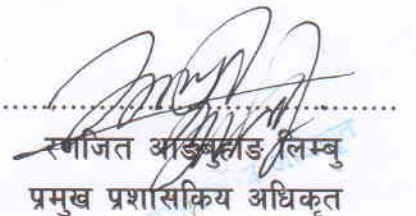 रणजित आङबुहाङ लिम्बु
प्रमुख प्रशासकिय अधिकृत